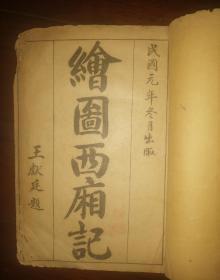 民國元年冬月出版
繪圖西廂記
王猷廷題